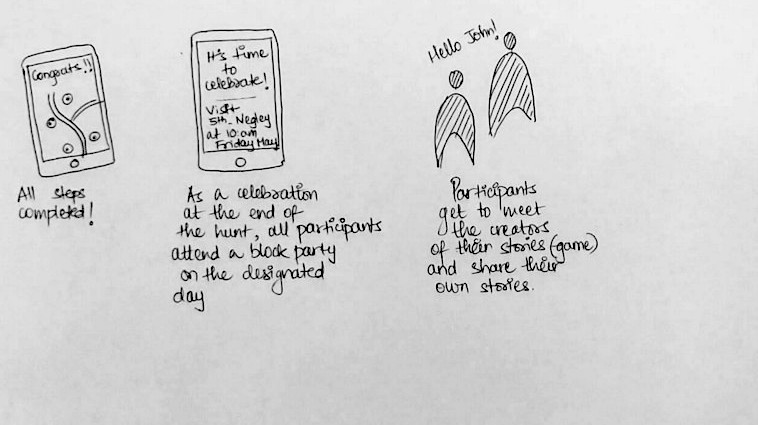 Congrats!!
All steps
completed!
It's time
to
celebrate!
Visit
5th-Negley
at 10:am
Friday May
As a celebration
at the end of
the hunt, all participants
attend a block party
on the designated
day
Hello John!
Participants
get to meet
the creators
of their stories (game)
and share their
own stories.